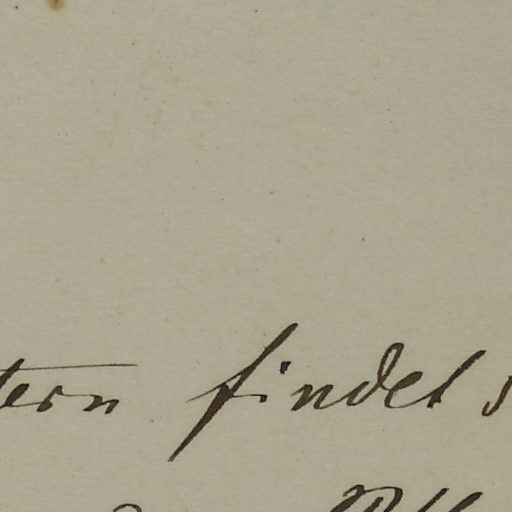 tern findet s